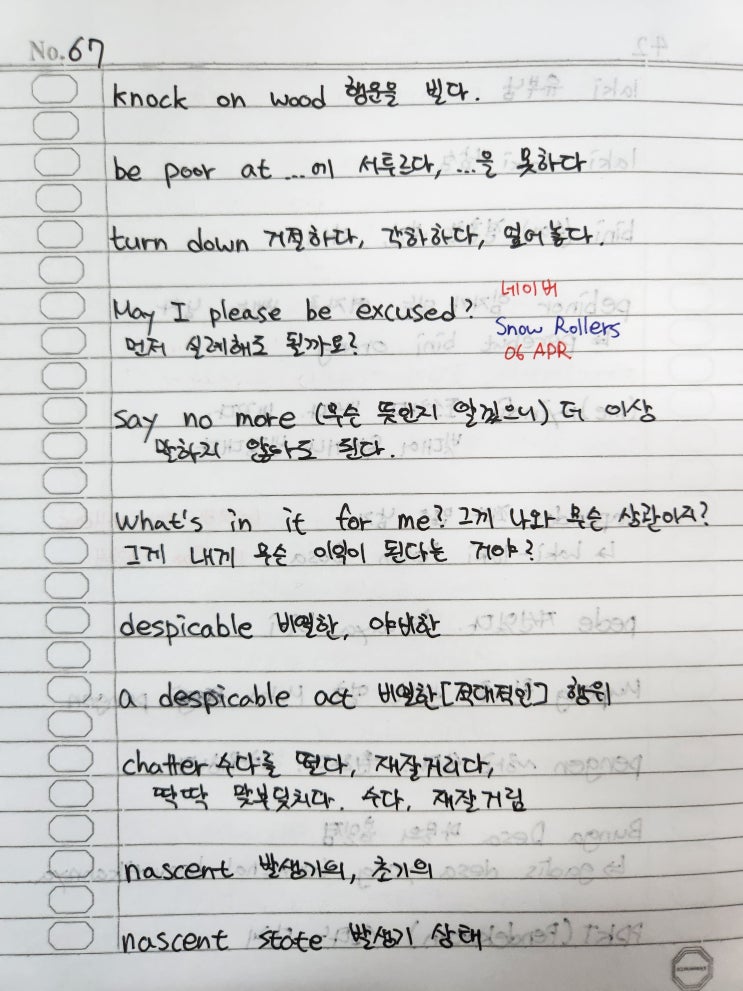 No. 67
knock on wood 행운을 빌다.
be poor at ...에 서투르다, ...을 못하다
turn down 거절하다, 각하하다, 떨어놓다.
네이버
May I please be excused?
Snow Rollers
먼저 실례해도 될까요?
06 APR
say no more (무슨 뜻인지 알겠으니) 더 이상
말하지 않아도 된다.
what's in it for me? 그게 나와 무슨 상관이지?
그게 내게 무슨 이익이 된다는 거야?
despicable 비열한, 야비한
a despicable act 비열한[적대적인] 행위
chatter 수다를 떨다, 재잘거리다,
딱딱 맞부딪치다. 수다, 재잘거림
nascent 발생기의, 초기의
nascent state 발생기 상태